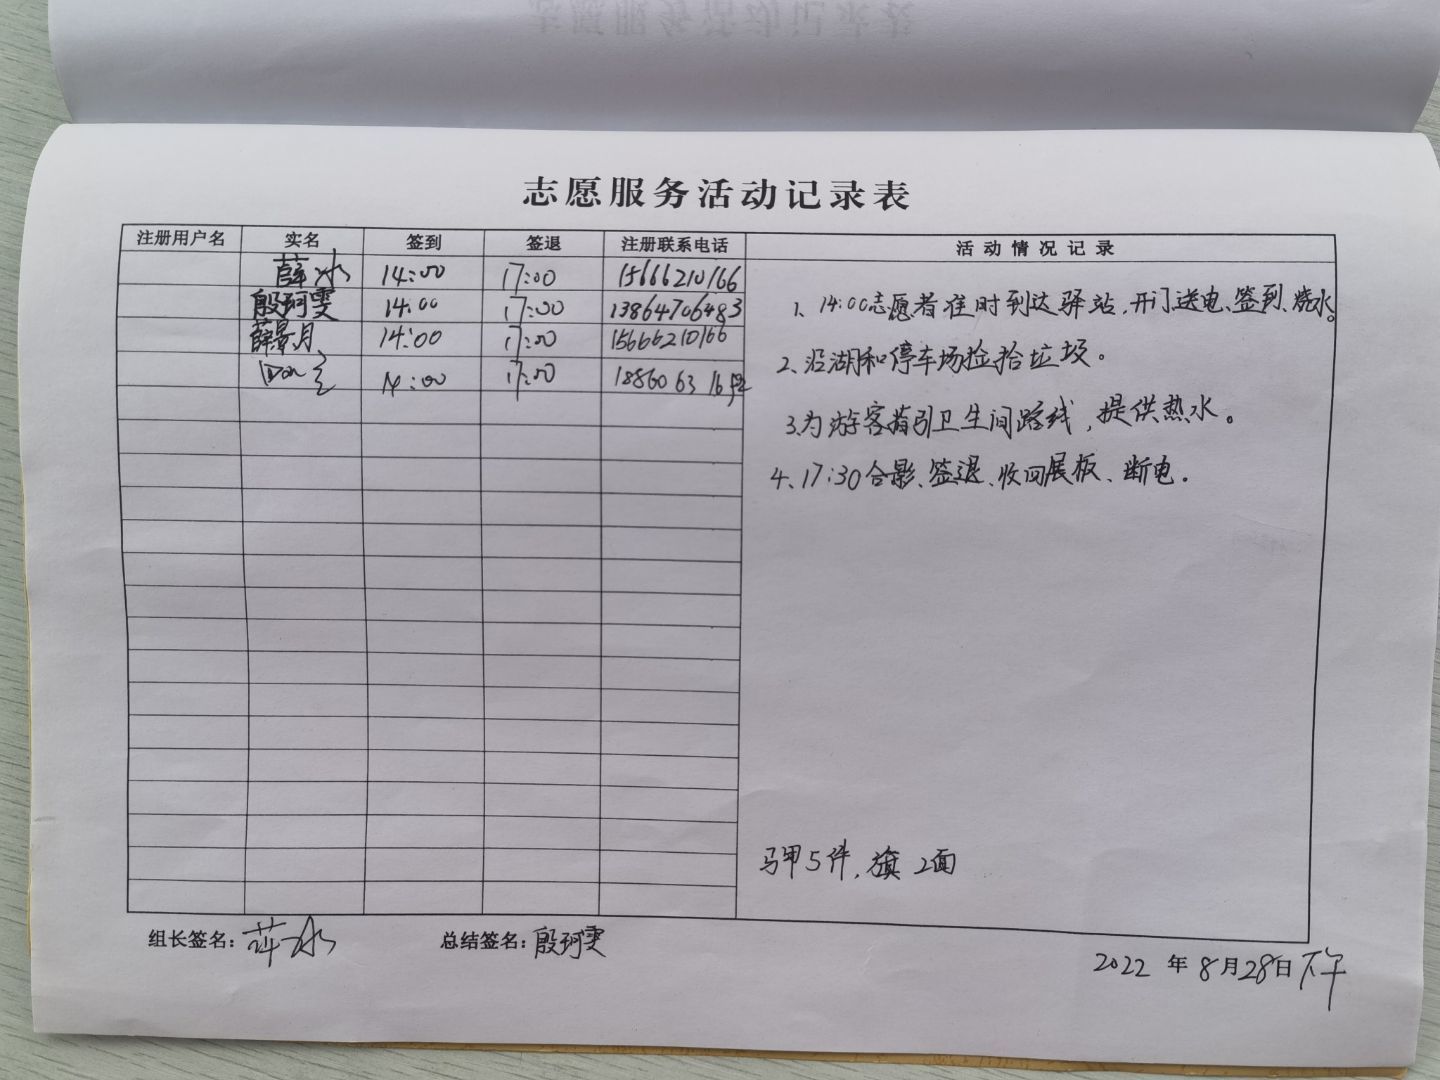 志愿服务活动记录表
注册用户名 实名 签到 签退 注册联系电话 活动情况记录
薛冰 14:00 17:00 15666210166
殷珂雯 14:00 17:00 13864706483
薛景月 14:00 17:00 15666210166
14:00 17:00
1、14:00志愿者准时到达驿站,开门送电、签到、烧水。
2、沿湖和停车场捡拾垃圾。
3.为游客指引卫生间路线,提供热水。
4、17:30合影、签退、收回展板、断电.
马甲5件,旗2面
组长签名:薛冰 总结签名:殷珂雯
2022年8月28日下午